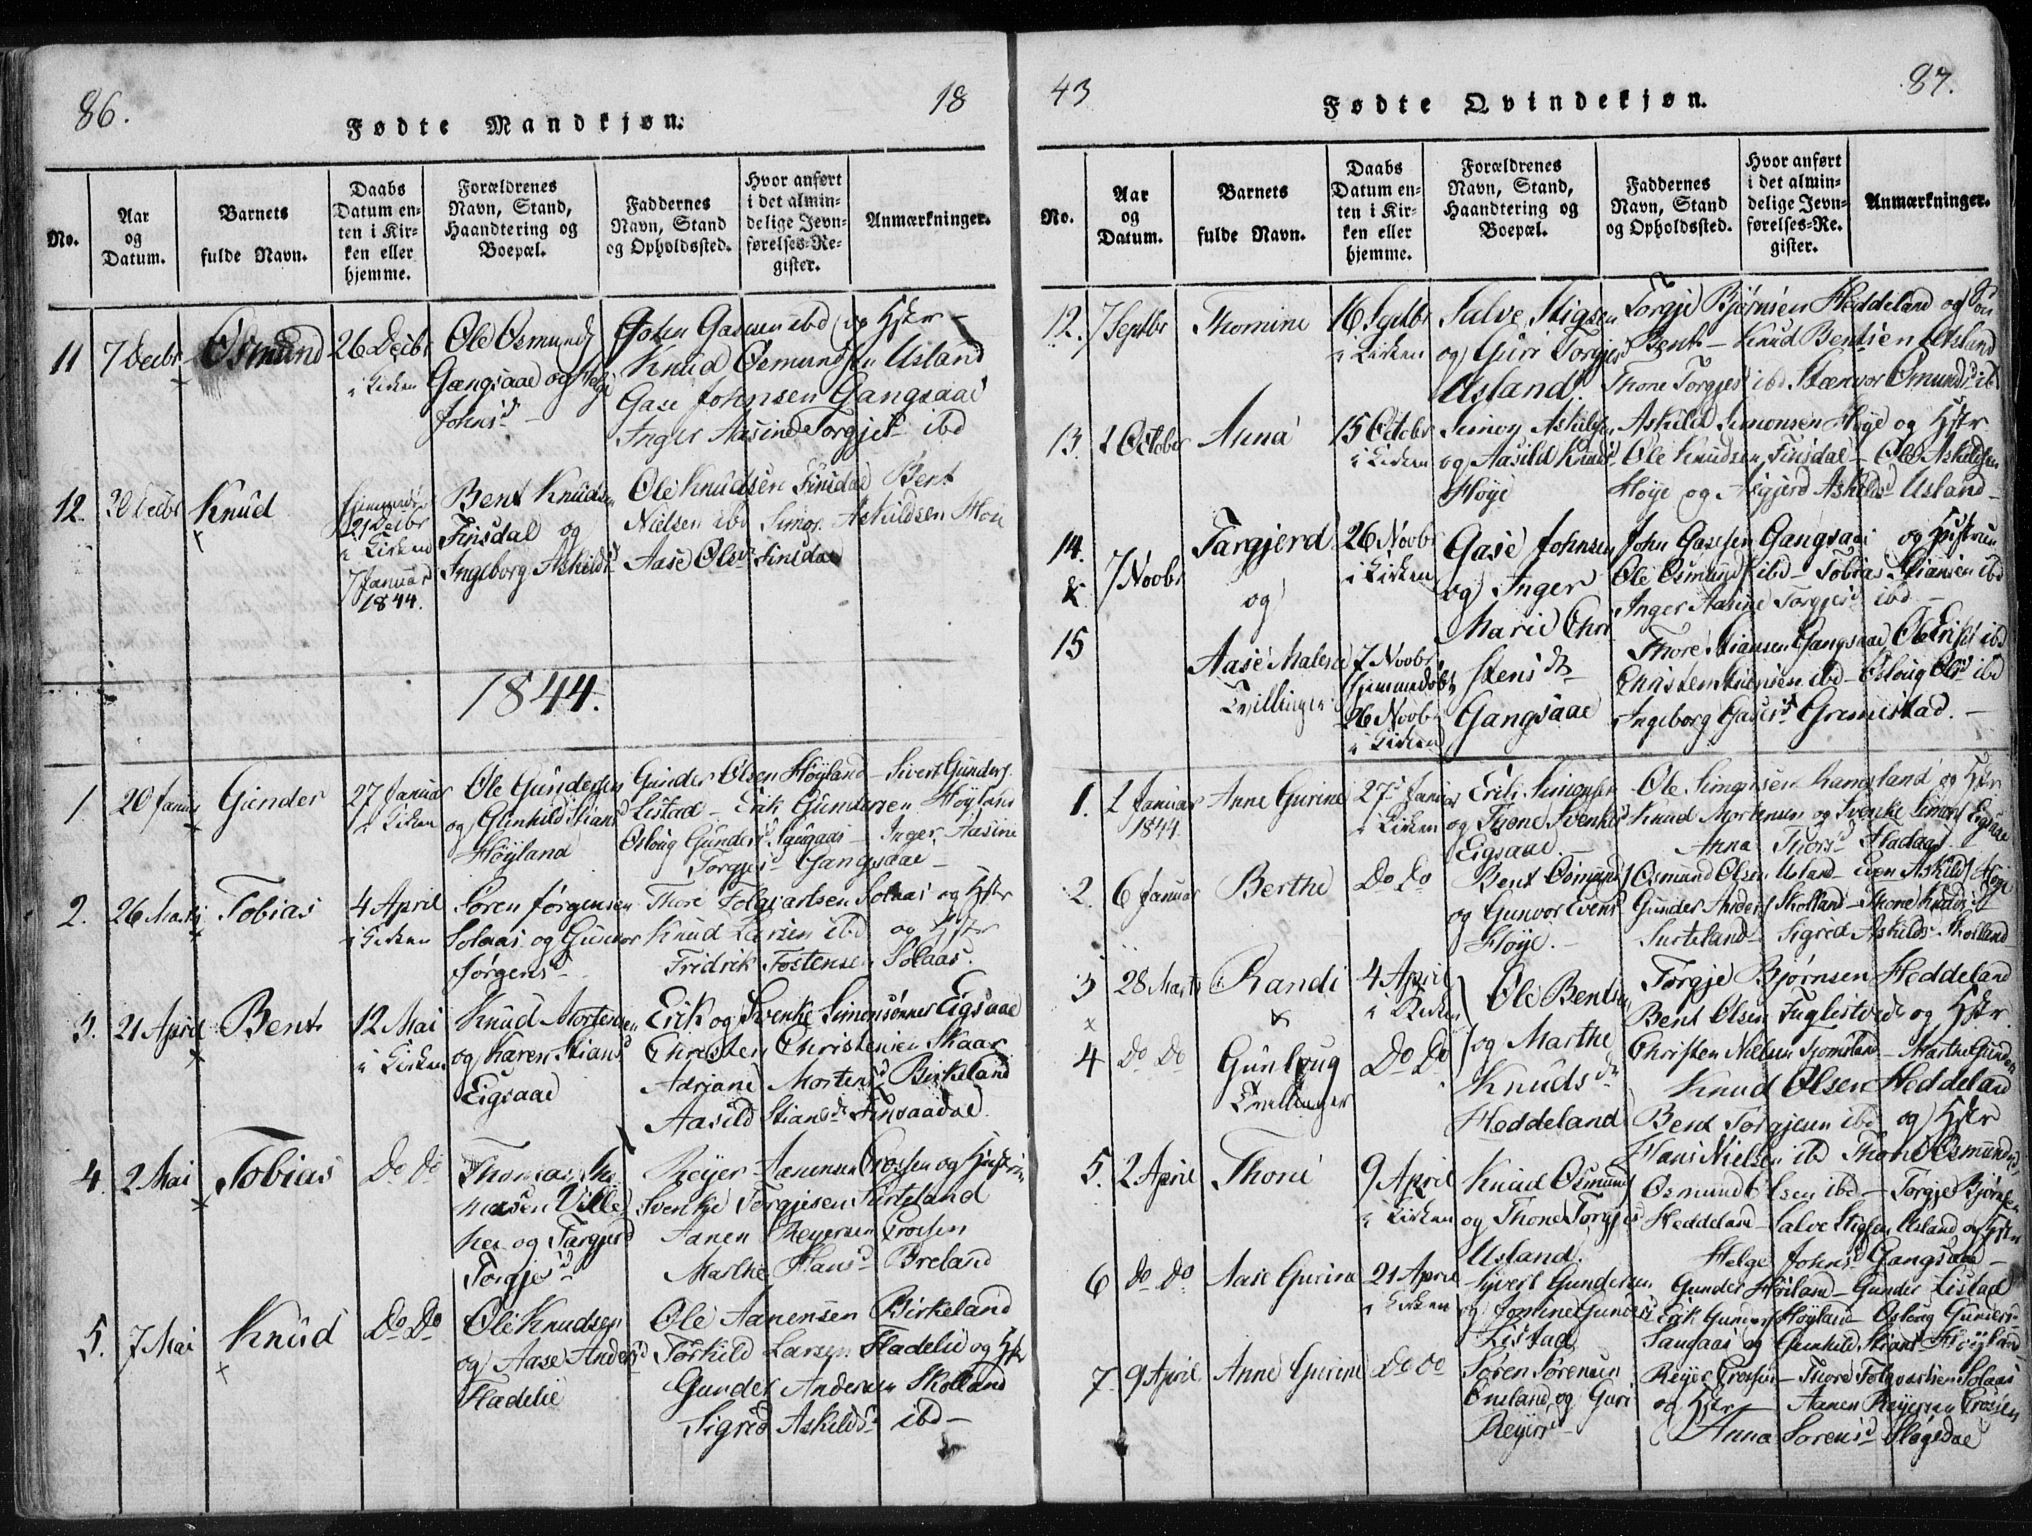 86.
18
Fødte Mandkjøn.
No.
Aar og Datum.
Barnets fulde Navn.
Daabs Datum enten i Kirken eller hjemme.
Forældrenes Navn, Stand, Haandtering og Boepæl.
Faddernes Navn, Stand og Opholdssted.
Hvor anført i det almindelige Jevnførelses-Register.
Anmærkninger.
11
7 Decbr
Osmund
26 Decbr
i Kirken
Ole Osmunds
Gangsaae og Helje
Johnsd
John Gasesen ibd og Hstr
Knud Osmundsen Usland
Gase Johnsen Gangsaae
Inger Aasine Torgjesd ibd
12.
30 Decbr
Knud
Hjemmedøbt
31 Decbr
i Kirken
7 Januar
1844.
Bent Knudsen
Finsdal og
Ingeborg Askildsd
Ole Knudsen Finsdal Bent
Nielsen ibd Simon Askildsen Høie
Aase Olsd Finsdal
1844.
1
20 Januar
Gunder
27 Januar
i Kirken
Ole Gundersen
og Gunhild Stiansd
Høyland
Gunder Olsen Høyland – Sivert Gunders.
Listad – Erik Gundersen Høyland
Osloug Gundersd Saugaas – Inger Aasine
Torgjesd Gangsaae –
2.
26 Marts
Tobias
4 April
i Kirken
Søren Jørgensen
Solaas og Gunvor
Jørgensd
Thore Folqvartsen Solaas og Hstr
Knud Larsen ibd og Hstr
Fridrik Tostensen Solaas.
3.
21 April
Bent
12 Mai
i Kirken
Knud Mortensen
og Karen Stiansd
Eigsaae
Erik og Svenke Simonsønner Eigsaae
Christen Christensen Skaar
Adriane Mortensd Birkeland
Aasild Stiansd Finsaadal.
4.
2 Mai
Tobias
Do Do
Thomas Tho
masen Ville
og Targjerd
Torgjesd
Reyer Aanensen Trossen og Hustru
Svenke Torgjesen Surteland
Aanen Reyersen Trossen
Marthe Hansd Breland
5.
7 Mai
Knud
Do Do
Ole Knudsen
og Aase Andersd
Hadelie
Ole Aanensen Birkeland
Torkild Larsen Hadelie og Hstr
Gunder Andersen Skolland
Sigrid Askildsd ibd –
43
87.
Fødte Qvindekjøn.
No.
Aar og Datum.
Barnets fulde Navn.
Daabs Datum enten i Kirken eller hjemme.
Forældrenes Navn, Stand, Haandtering og Boepæl.
Faddernes Navn, Stand og Opholdssted.
Hvor anført i det almindelige Jevnførelses-Register.
Anmærkninger.
12.
7 Septbr
Thomine
16 Septbr
i Kirken
Salve Stigsen
og Guri Torgjesd
Usland.
Torgje Bjørnsen Heddeland og
Bent – Knud Bentsen Usland
Thone Torgjesd ibd Stænvor Osmundsd ibd
13.
October
Anna
15 Octobr
i Kirken
Simon Askildsen
og Aasild Knudsd
Høye
Askild Simonsen Høye og Hstr
Ole Knudsen Finsdal – Ole Askildsen
Høye og Asgjerd Askildsd Usland –
14.
&
15
7 Novbr
Targjerd
og
Aase Malene
Tvillinger
26 Novbr
i Kirken
7 Novbr
Hjemmedøbt
26 Novbr
i Kirken
Gase Johnsen
og Inger
Marie Chri
stensdtr
Gangsaae
John Gasesen Gangsaae og Hustrue
Ole Osmunds ibd – Tobias Stiansen ibd
Inger Aasine Torgjesd ibd –
Thore Stiansen Gangsaae Ole Eriks ibd
Christen ibd – Osloug Olsd ibd
Ingeborg Gasesd Grimestad. –
1.
2 Januar
1844.
Anne Gurine
27 Januar
i Kirken
Erik Simonsen
og Thone Svenkesd
Eigsaae. –
Ole Simonsen Ramsland og Hstr
Knud Mortensen og Svenke Simons Eigsaae
Anna Thorsd Fladaas
2.
6 Januar
Berthe
Do Do
Bent Osmunds
og Gunvor Evensd
Høye. –
Osmund Olsen Usland – Even Askilds Høye
Gunder Anders Skolland – Thone
Surteland – Sigred Askildsd Skolland
3
28 Marts
Randi
4 April
i Kirken
Ole Bentsen
og Marthe
Knudsdtr
Heddeland
Torgje Bjørnsen Heddeland
Bent Olsen Fuglestvedt og Hstr.
Christen Nielsen – Marthe Gundersd
4
Do Do
Gunloug
Tvillinger
Do Do
Knud Olsen Heddeland
Bent Torgjesen ibd og Hstr
Hans Nielsen ibd Thone Osmundsd
5.
2 April
Thone
9 April
i Kirken
Knud Osmunds
og Thone Torgjesd
Usland.
Osmund Olsen ibd – Torgje Bjørnsen
Heddeland – Salve Stigsen Usland og Hstr
Helge Johnsd Gangsaae –
6
Do Do
Aase Gurine
21 April
i Kirken
Syvert Gundersen
og Jomine Gundersd
Listad
Gunder Høiland – Gunder Listad
Erik Gunders Høyland – Osloug Gundersd
Saugaas og Gunhild Stiansd Høyland
7.
9 April
Anne Gurine
Do Do
Søren Sørensen
og Guri
Reyersd
Reyer Trossen – Thore Folqvartsen Solaas
og Hstr – Aanen Reyersen Trossen
Anna Sørensd Sløgedal